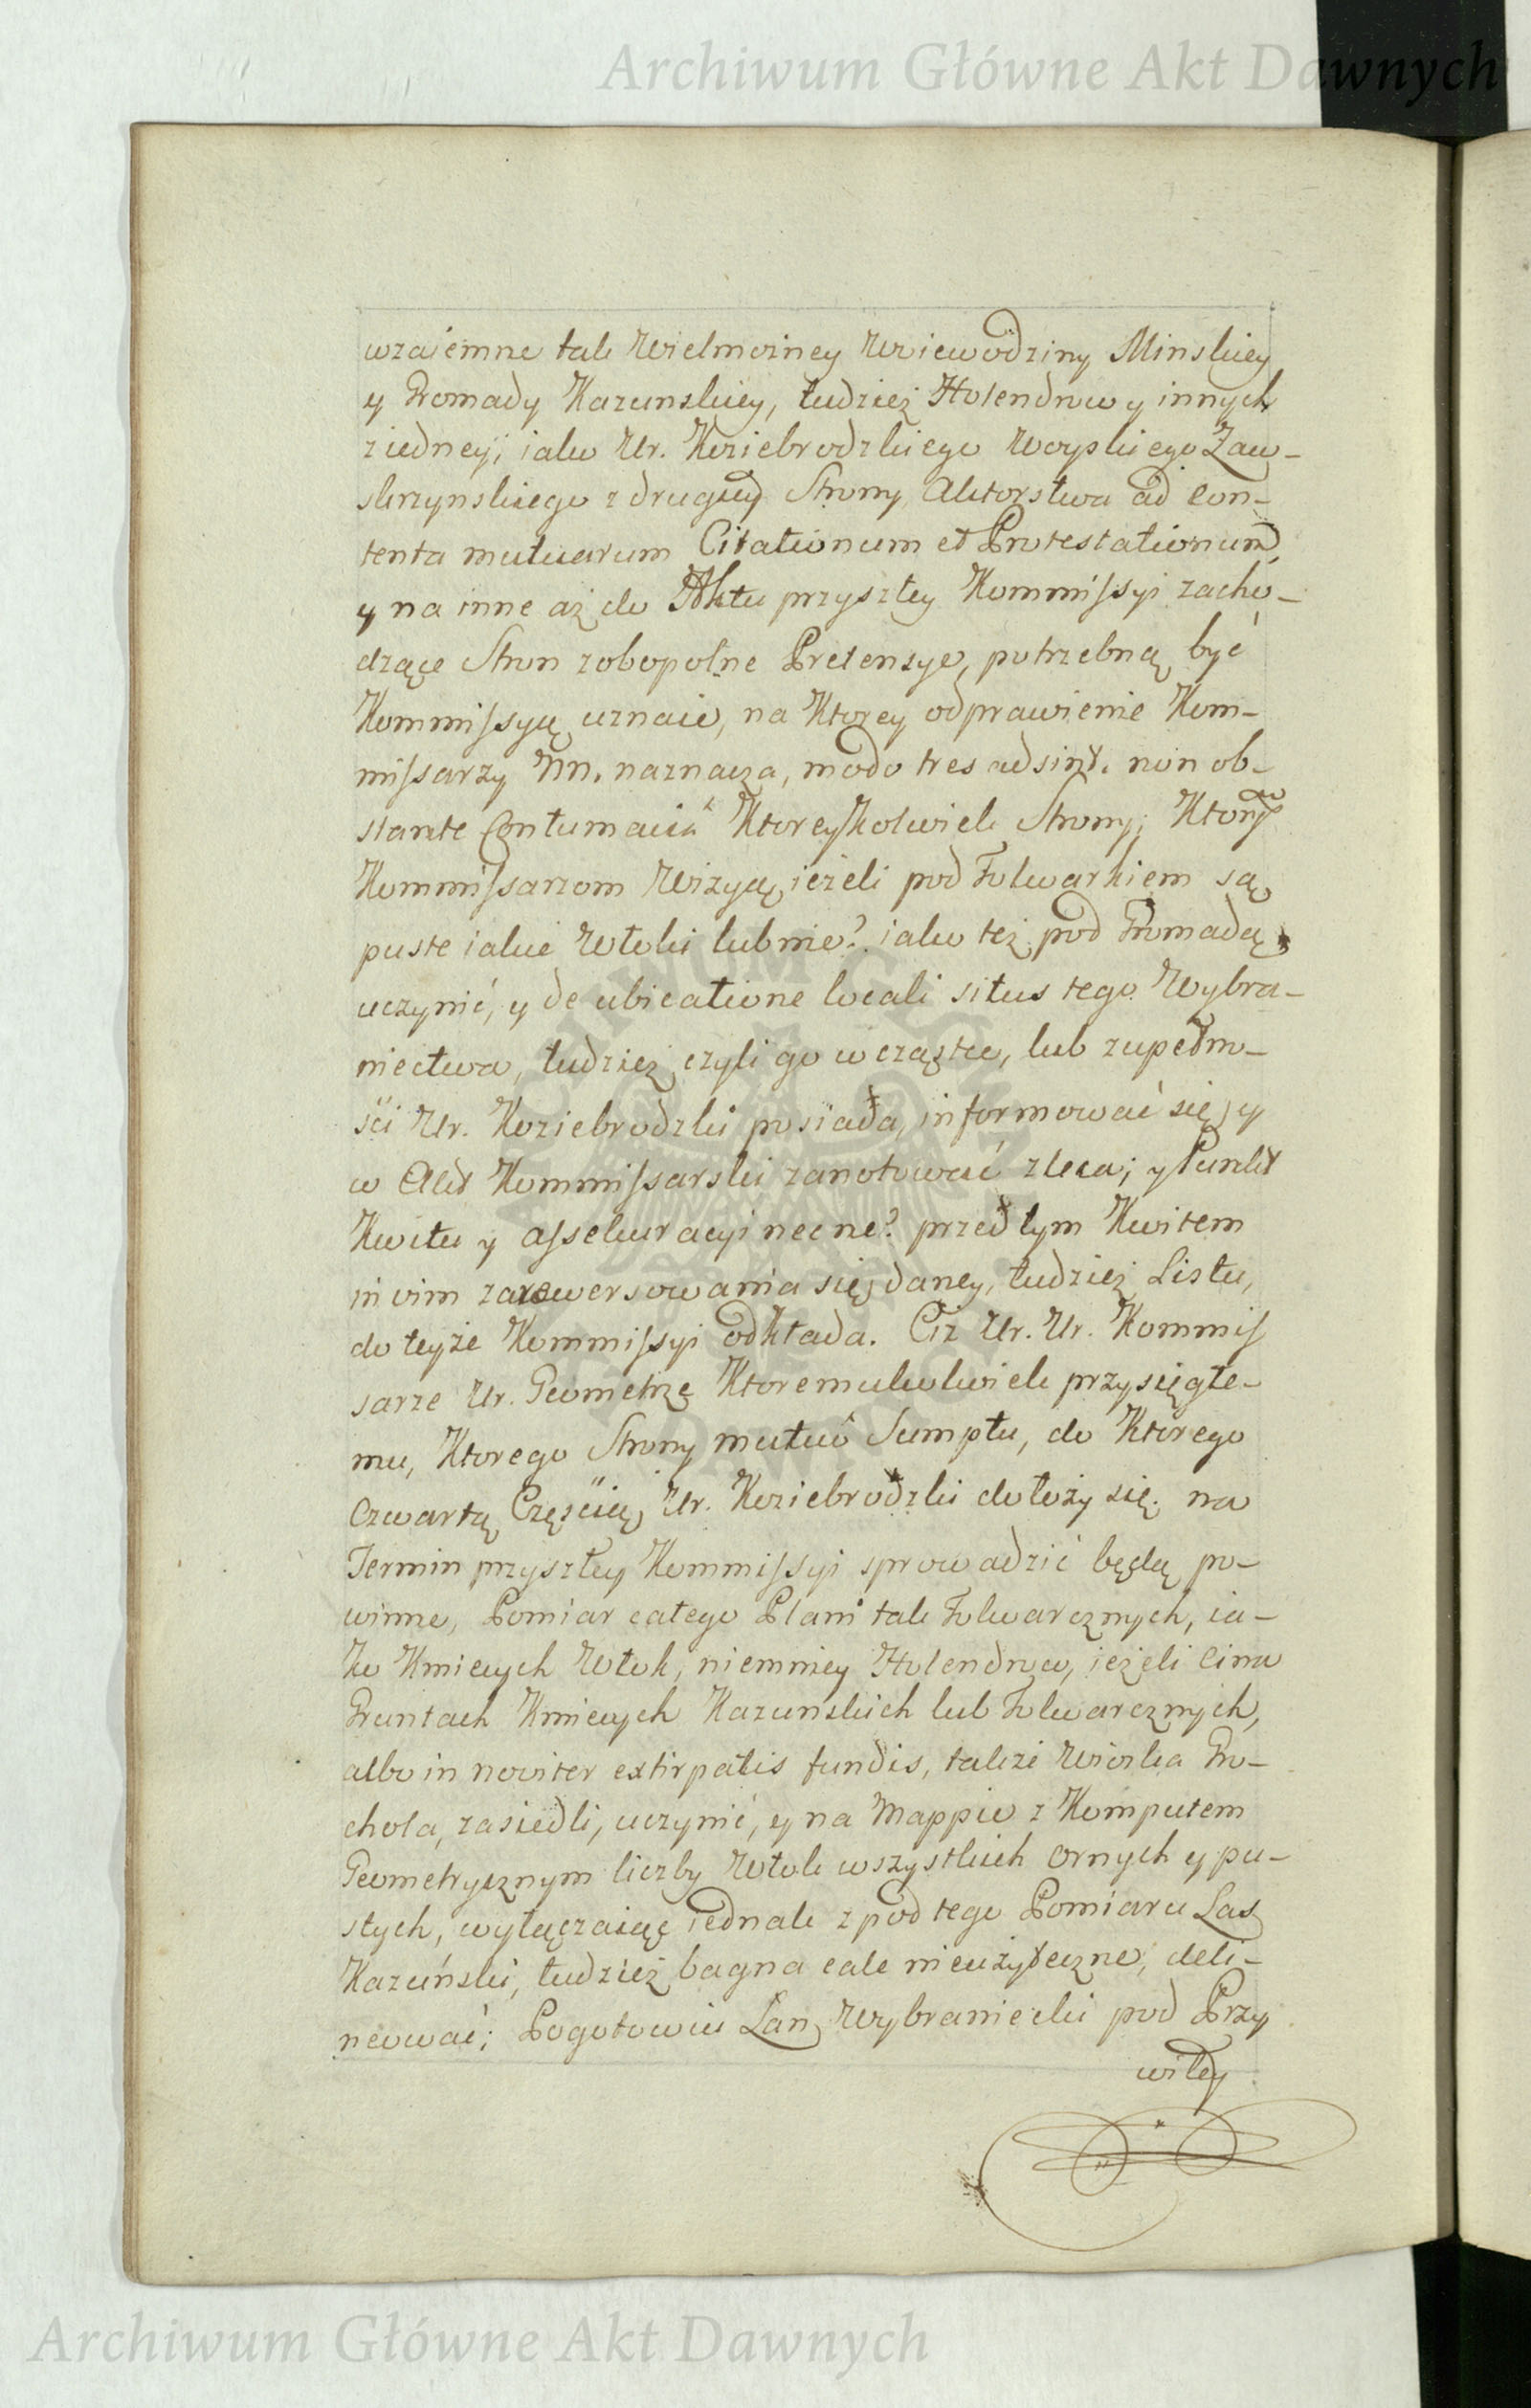 Archiwum Główne Akt Dawnych
wzaiemne tak Wielmożney Woiewodziny Minskiey
y Gromady Kazunskiey, tudzież Holendrow y innych
z iedney, iako Ur. Koziebrodzkiego Woyskiego Zaw-
skrzynskiego z drugiey Strony Aktorstwa ad Con-
tenta mutuarum Citationum et Protestationum,
y na inne aż do Aktu przyszłey Kommissyi zacho-
dzące Stron zobopolne Pretensye, potrzebną być
Kommissyą uznaie, na Ktorey odprawienie Kom-
missarzy Nn. naznacza, modo tres adsint. non ob-
stante Contumaciâ Ktoreyżkolwiek Strony; Ktorym
Kommissarzom Wizyą, ieżeli pod Folwarkiem są
puste iakie Włoki lub nie? iako też pod Gromadą
uczynić, y de ubicatione locali situs tego Wybra-
niectwa, tudzież czyli go w cząstce, lub zupełno-
ści Ur. Koziebrodzki posiada, informować się, y
w Akt Kommissarski zanotować zleca; y Punkt
Kwitu y Assekuracyi necne? przed tym Kwitem
in vim zarewersowania się daney, tudzież Listu,
do teyże Kommissyi odkłada. Ciż Ur. Ur. Kommis
sarze Ur. Geometrze Ktoremukolwiek przysięgłe-
mu, Ktorego Strony mutuô Sumptu, do Ktorego
Czwartą Częścią Ur. Koziebrodzki dołoży się. na
Termin przyszłey Kommissyi sprowadzić będą po-
winne, Pomiar całego Plani tak Folwarcznych, ia-
ko Kmiecych Włok, niemniey Holendrow, ieżeli ci na
Gruntach Kmiecych Kazunskich lub Folwarcznych,
albo in noviter extirpatis fundis, takze Wioska Gro-
chola, zasiedli, uczynić, y na Mappie z Komputem
Geometrycznym liczby Włok wszystkich ornych y pu-
stych, wyłączaiąc iednak z pod tego Pomiaru Las
Kazuński, tudzież bagna cale nieużyteczne, deli-
neować; Pogotowiu Łan Wybraniecki pod Przy
wiley
Archiwum Główne Akt Dawnych